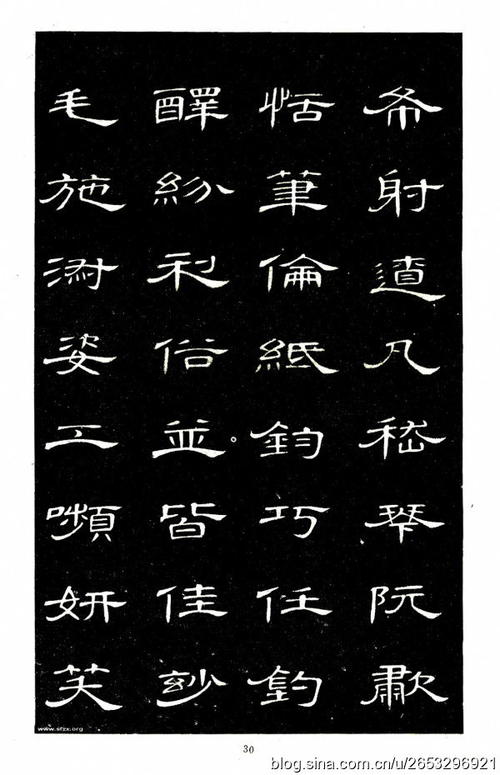 布射遼丸嵇琴阮歗
恬筆倫紙鈞巧任釣
醳紛利俗並皆佳玅
毛施淑姿工嚬妍笑
www.sfzx.org
30
blog.sina.com.cn/u/2653296921